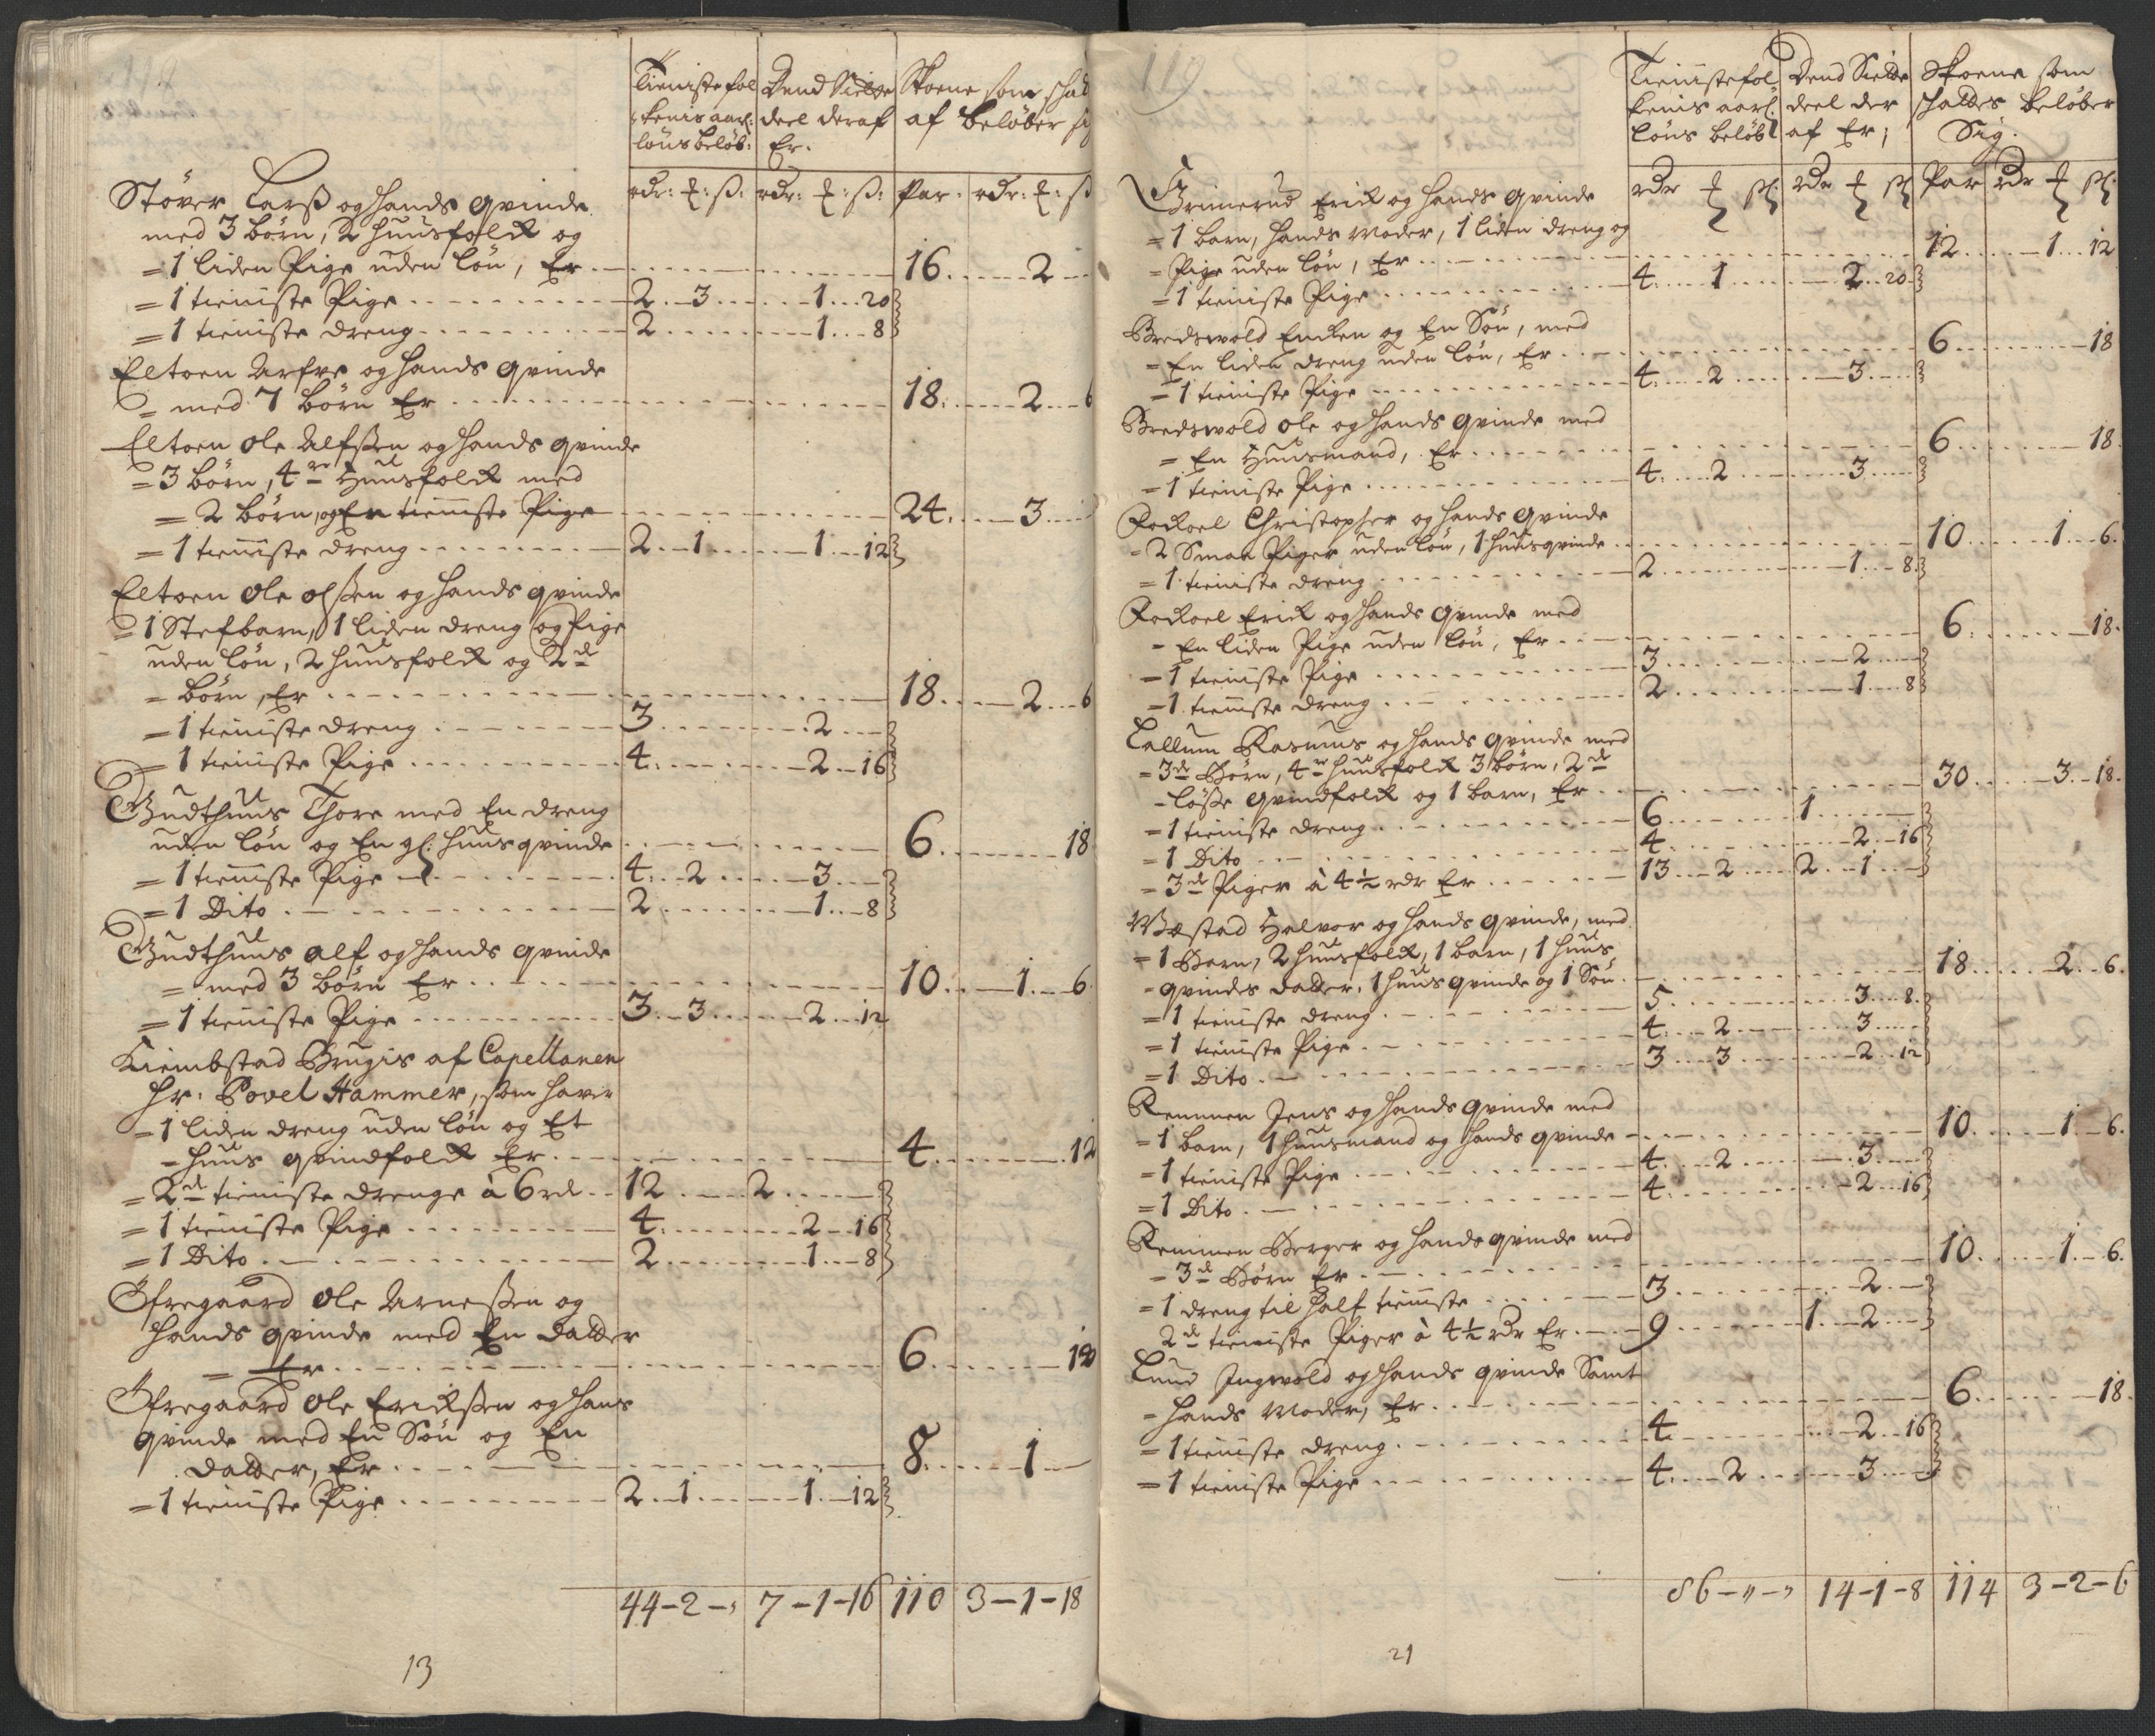 Tienistefol Dend Siette Skoene som skal
kenis aarl: deel deraf af beløber si
løns beløb: Er.
rdr: ß: rdr: ß: Par. rdr: ß
Støver Larß og hands qvinde
med 3 børn, 2 huusfolck og
= 1 liden Pige uden løn, Er 16 2
= 1 tieniste Pige 2 3 1 20
= 1 tieniste dreng 2 1 8
Eltoen Arfve og hands qvinde
= med 7 børn Er 18 2 6
Eltoen Ole Alfßen og hands qvinde
= 3 børn, 4re Huusfolck med
= 2 børn, og En tieniste Pige 24 3
= 1 tieniste dreng 2 1 1 12
Eltoen Ole Olßen og hands qvinde
= 1 Stefbarn, 1 liden dreng og Pige
uden løn, 2 huusfolck og 2de
= børn, Er 18 2 6
= 1 tieniste dreng 3 2
= 1 tieniste Pige 4 2 16
Gudthuus Thore med En dreng
uden løn og En gl: huusqvinde 6 18
= 1 tieniste Pige 4 2 3
= 1 Dito 2 1 8
Gudthuus Alf og hands qvinde
= med 3 børn Er 10 1 6
= 1 tieniste Pige 3 3 2 12
Kiembstad Brugis af Capellanen
Hr: Povel Hammer, som haver
= 1 liden dreng uden løn og Et
= huus qvindfolck Er 4 12
= 2de tieniste drenge à 6 rd 12 2
= 1 tieniste Pige 4 2 16
= 1 Dito 2 1 8
Ofregaard Ole Arneßen og
hands qvinde med En datter
= Er 6 18
Ofregaard Ole Erickßen og hans
qvinde med En Søn og En
datter, Er 8 1
= 1 tieniste Pige 2 1 1 12
44-2-" 7-1-16 110 3-1-18
13
119
Tienistefol Dend Siette Skoene som
kenis aarl: deel der skattes beløber
løns beløb af Er; Sig.
rdr ß rdr ß Par rdr ß
Grimerud Erick og hands qvinde
= 1 barn, hands Moder, 1 liden dreng og
= Pige uden løn, Er 12 1 12
= 1 tieniste Pige 4 1 2 20
Bredevold Encken og En Søn, med
= En liden dreng uden løn, Er 6 18
= 1 tieniste Pige 4 2 3
Bredevold Ole og hands qvinde med
= En Huusmand, Er 6 18
= 1 tieniste Pige 4 2 3
Christopher og hands qvinde
= 2 Smaa Piger uden løn, 1 huusqvinde 10 1 6
= 1 tieniste dreng 2 1 8
Erick og hands qvinde med
= En liden Pige uden løn, Er 6 18
= 1 tieniste Pige 3 2
= 1 tieniste dreng 2 1 8
Callum Rasmus og hands qvinde med
= 3de Børn, 4re huusfolck 3 børn, 2de
= løße qvindfolck og 1 barn, Er 30 3 18
= 1 tieniste dreng 6 1
= 1 Dito 4 2 16
= 3de Piger à 4½ rdr Er 13 2 2 1
Wæstad Halvor og hands qvinde, med
= 1 Barn, 2 huusfolck, 1 barn, 1 huus
= qvindes datter, 1 huusqvinde og 1 Søn 18 2 6
= 1 tieniste dreng 5 3 8
= 1 tieniste Pige 4 2 3
= 1 Dito 3 3 2 12
Remmen Jens og hands qvinde med
= 1 barn, 1 huusmand og hands qvinde 10 1 6
= 1 tieniste Pige 4 2 3
= 1 Dito 4 2 16
Remmen Berger og hands qvinde med
= 3de Børn Er 10 1 6
= 1 dreng til half tieniste 3 2
2de tieniste Piger à 4½ rdr Er 9 1 2
Lund Ingvold og hands qvinde Samt
= hands Moder, Er 6 18
= 1 tieniste dreng 4 2 16
= 1 tieniste Pige 4 2 3
86-"-" 14-1-8 114 3-2-6
21